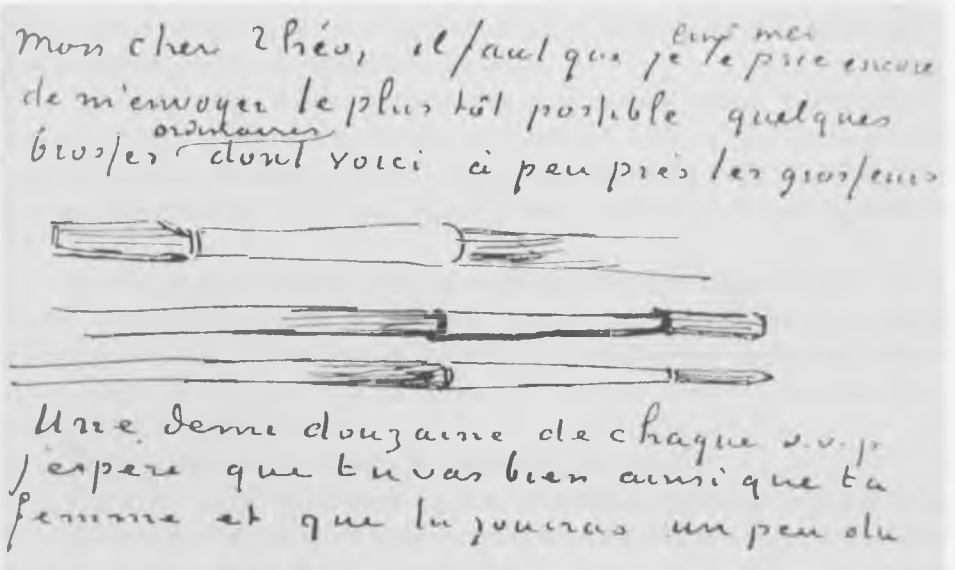 Mon cher Théo, il faut que je te prie encore
de m'envoyer le plus tôt possible quelques
brosses ordinaires dont voici à peu près les grosseurs
Une demi douzaine de chaque s.v.p
j'espere que tu vas bien ainsi que ta
femme et que tu jouiras un peu du